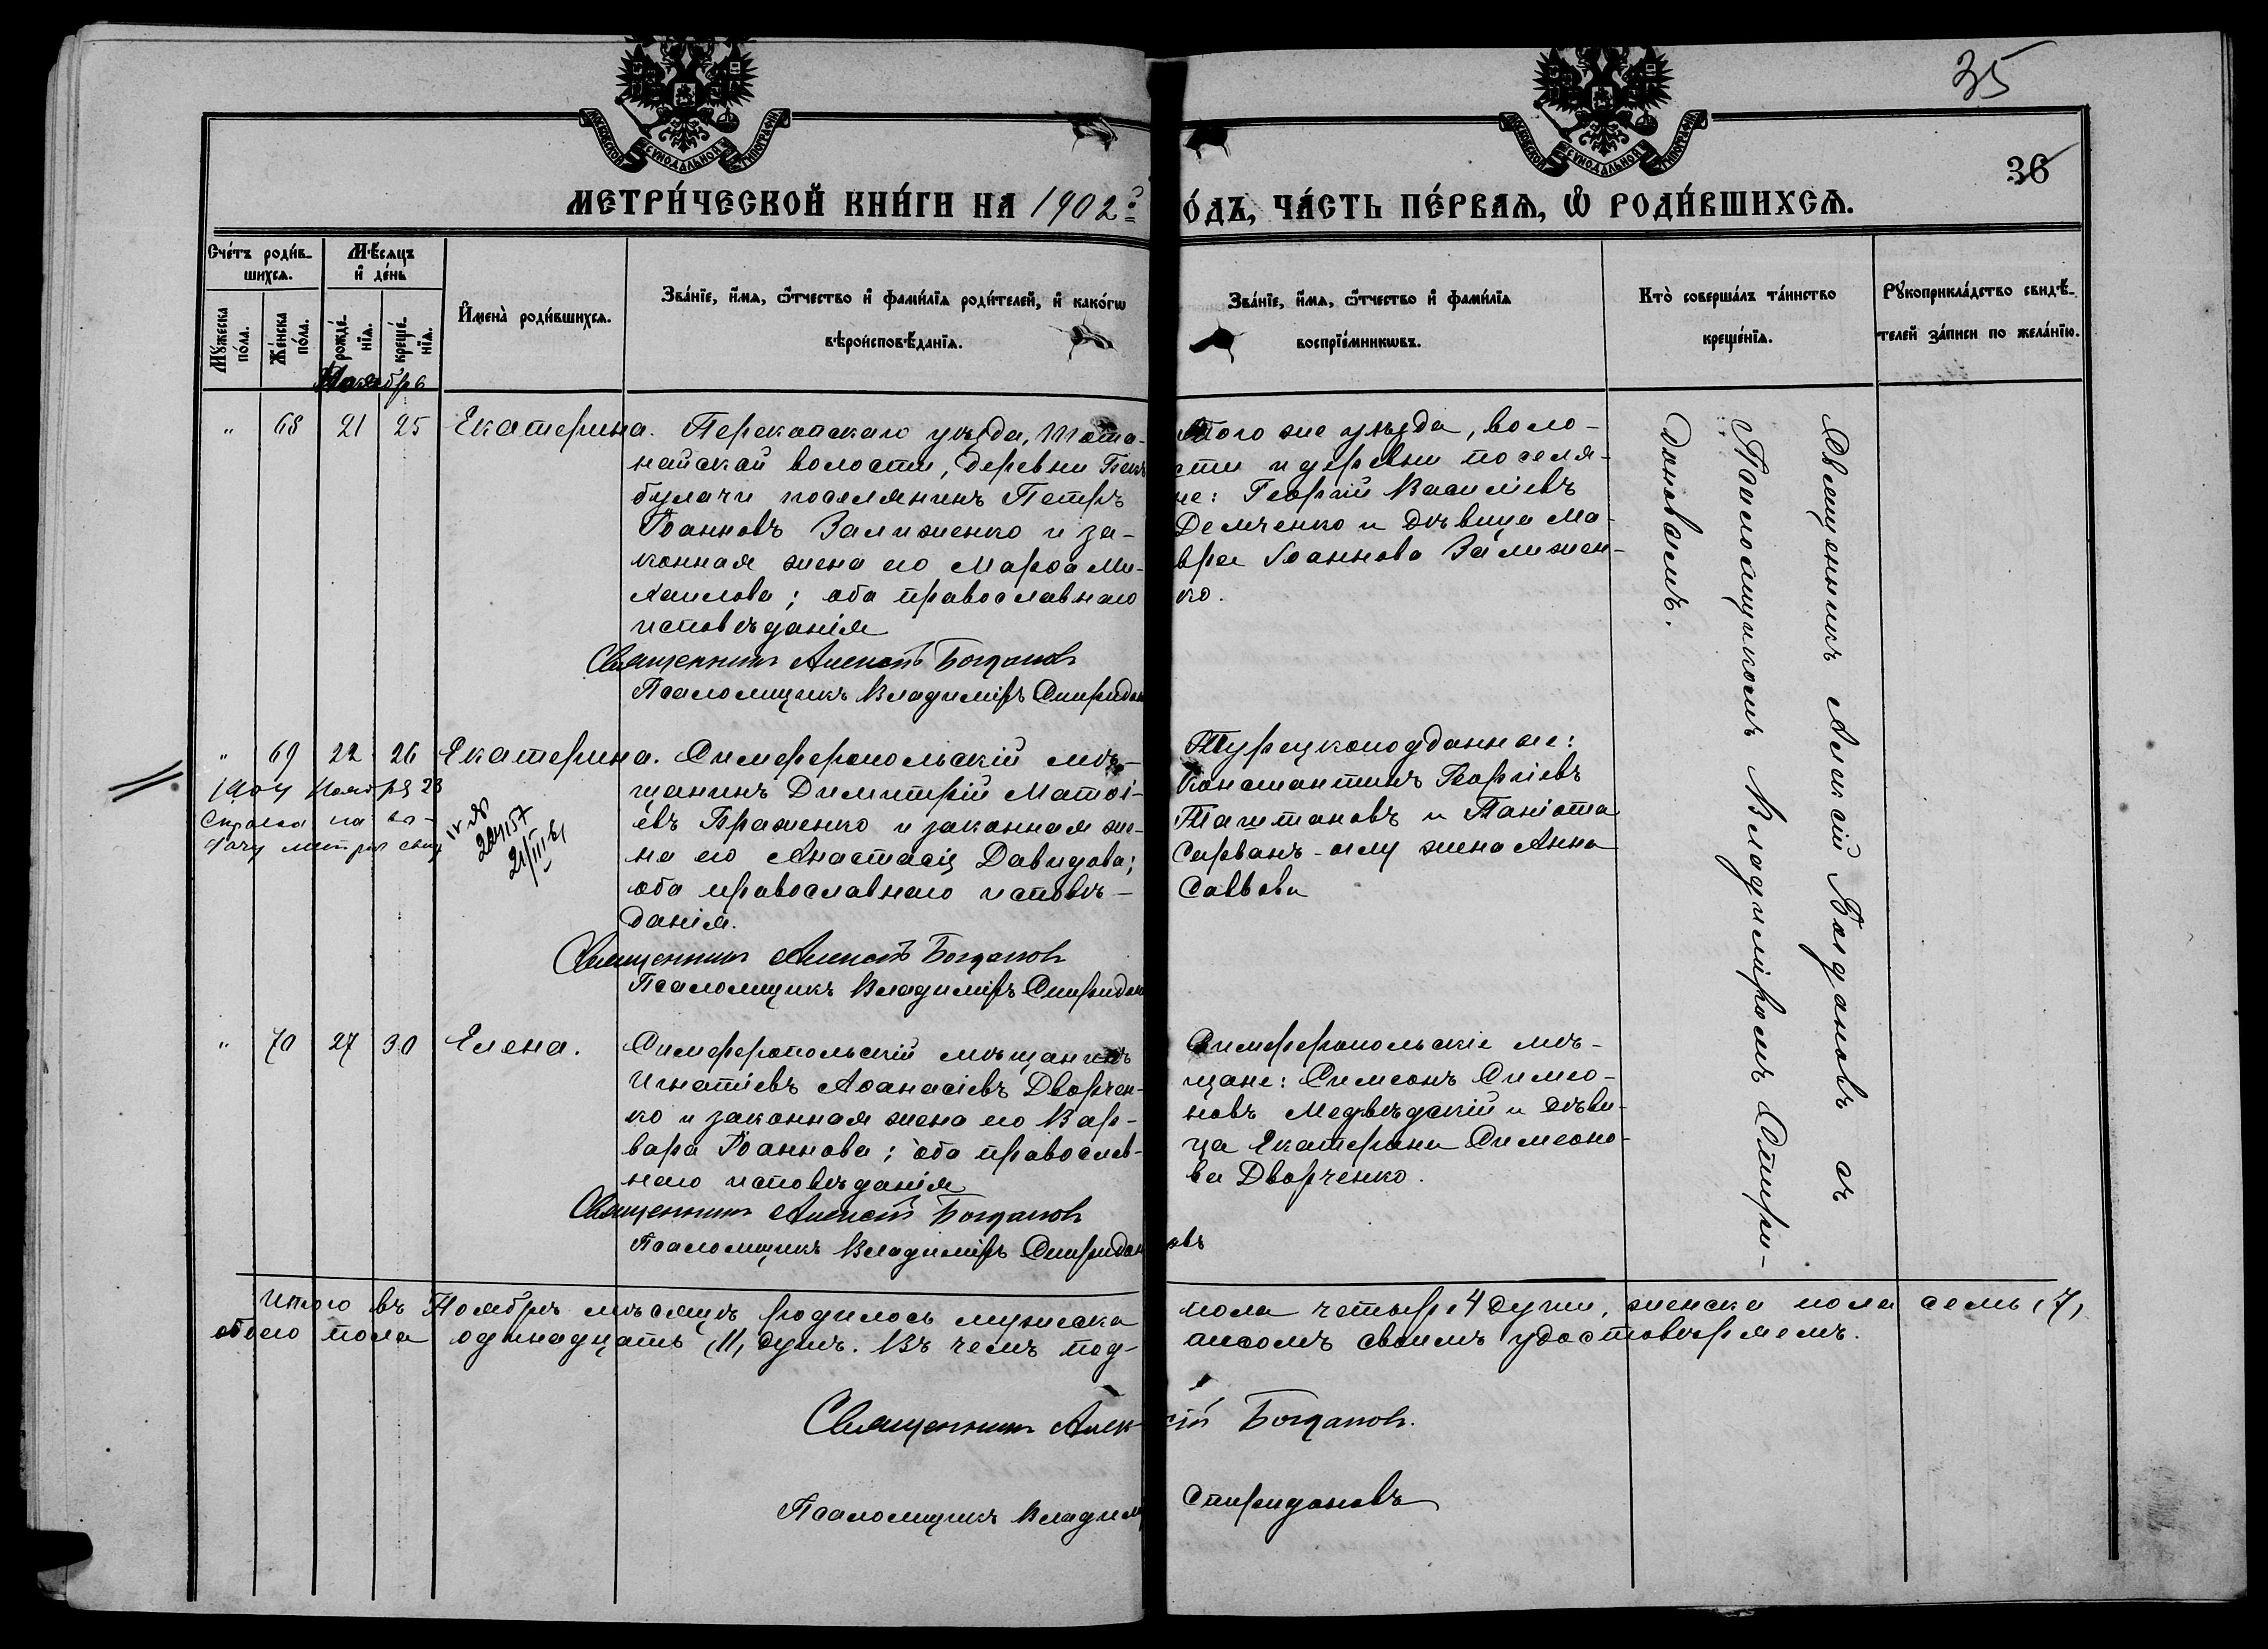 35
36
МОСКОВСКОЙ СѴНОДАЛЬНОЙ ТИПОГРАФІИ
МОСКОВСКОЙ СѴНОДАЛЬНОЙ ТИПОГРАФІИ
МЕТРИ́ЧЕСКОЙ КНИ́ГИ НА 1902 го́
О́ДЪ, ЧА́СТЬ ПЕ́РВАѦ, Ѡ РОДИ́ВШИХСѦ.
Сче́тъ роди́в-
шихсѧ.
Мꙋ́жеска по́ла.
Же́нска по́ла.
Мѣ́сѧцъ
и҆ де́нь
рожде́-
нїѧ.
креще́-
нїѧ.
И҆мена̀ роди́вшихсѧ.
Зва́нїе, и҆́мѧ, ѻ҆́тчество и҆ фами́лїѧ роди́телей, и҆ како́гѡ
вѣроисповѣ́данїѧ.
Зва́нїе, и҆́мѧ, ѻ҆́тчество и҆ фами́лїѧ
воспрїе́мникѡвъ.
Кто̀ соверша́лъ та́инство
креще́нїѧ.
Рꙋкоприкла́дство свидѣ́-
телей за́писи по жела́нїю.
Ноября
" 68 21 25 Екатерина.
Перекопскаго уѣзда,
найской волости, деревни
булачи поселянинъ Петръ
Іоанновъ Залиженко и за-
конная жена его Марѳа Ми-
хаилова; оба православнаго
исповѣданія
Священникъ Алексій Богдановъ
Псаломщикъ Владиміръ Спиридон
того же уѣзда, воло-
сти и деревни поселя-
не: Георгій Василіевъ
Демченко и дѣвица Ма-
вра Іоаннова Залижен-
ко.
Священникъ Алексій Богдановъ съ
Псаломщикомъ Владиміромъ Спири-
доновымъ.
" 69 22 26 Екатерина.
1904 Ноября 23
Справка на вы-
дачу метрич свид
204157
21/III
Симферопольскій мѣ-
щанинъ Димитрій Матѳі-
евъ Браженко и законная же-
на его Анастасія Давидова;
оба православнаго исповѣ-
данія.
Священникъ Алексій Богдановъ
Псаломщикъ Владиміръ Спиридон
Турецкоподданные:
Константинъ Георгіевъ
Таштановъ и Паніота
Сарванъ-оглу жена Анна
Саввова
" 70 27 30 Елена.
Симферопольскій мѣщанинъ
Игнатіевъ Аѳанасіевъ Дворчен-
ко и законная жена его Вар-
вара Іоаннова; оба православ-
наго исповѣданія
Священникъ Алексій Богдановъ
Псаломщикъ Владиміръ Спиридоновъ
Симферопольскіе мѣ-
щане: Симеонъ Симео-
новъ Медвѣдскій и дѣви-
ца Екатерина Симеоно-
ва Дворченко.
Итого въ Ноябрѣ мѣсяцѣ родилось мужеска пола четыре 4 души, женска пола семь (7)
обоего пола одинадцать (11) душъ. Въ чемъ подписомъ своимъ удостовѣряемъ.
Священникъ Алексій Богдановъ.
Псаломщикъ Владим Спиридоновъ